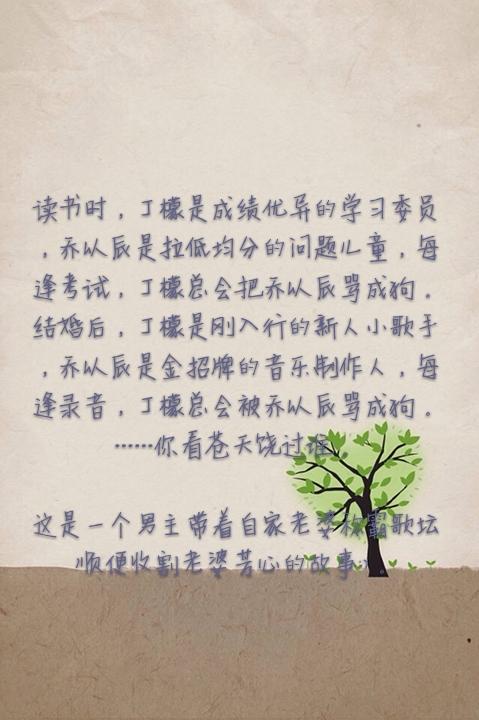 读书时，丁檬是成绩优异的学习委员
，乔以辰是拉低均分的问题儿童，每
逢考试，丁檬总会把乔以辰骂成狗。
结婚后，丁檬是刚入行的新人小歌手
，乔以辰是金招牌的音乐制作人，每
逢录音，丁檬总会被乔以辰骂成狗。
……你看苍天饶过谁。
这是一个男主带着自家老婆称霸歌坛
顺便收割老婆芳心的故事。